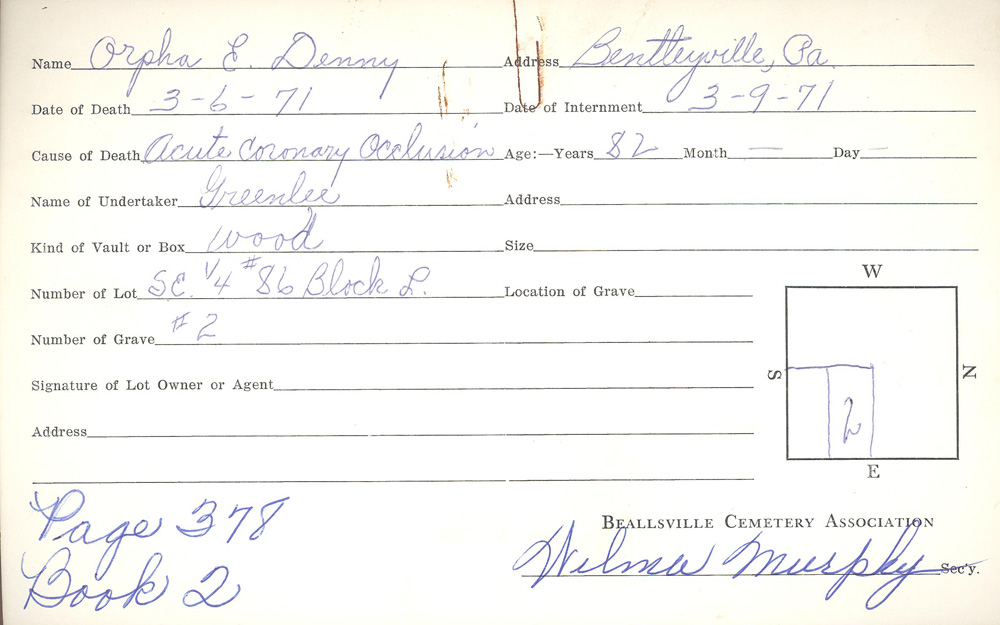 Name Orpha E. Denny Address Bentleyville, Pa.
Date of Death 3-6-71 Date of Internment 3-9-71
Cause of Death Acute Coronary Occlusion Age:—Years 82 Month — Day —
Name of Undertaker Greenlee Address
Kind of Vault or Box wood Size
Number of Lot SE. 1/4 #86 Block L. Location of Grave
Number of Grave #2
Signature of Lot Owner or Agent
Address
W
S N
2
E
Page 378
Book 2
BEALLSVILLE CEMETERY ASSOCIATION
Wilma Murphy Sec'y.